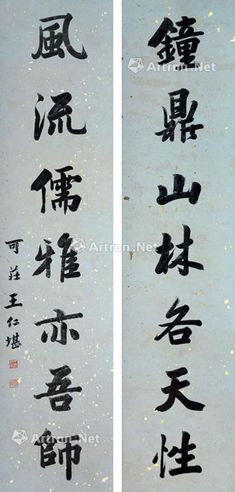 鐘鼎山林各天性
風流儒雅亦吾師
可莊王仁堪
Artron.Net
Artron.Net
Artron.Net
Artron.Net